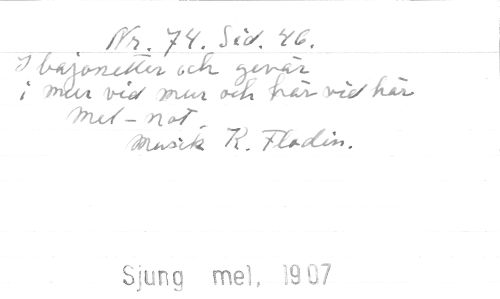 Nr. 74. Sid. 46.
I bajonetter och gevär
i mur vid mur och här vid här
Mel-not.
Musik K. Flodin.
Sjung mel, 1907